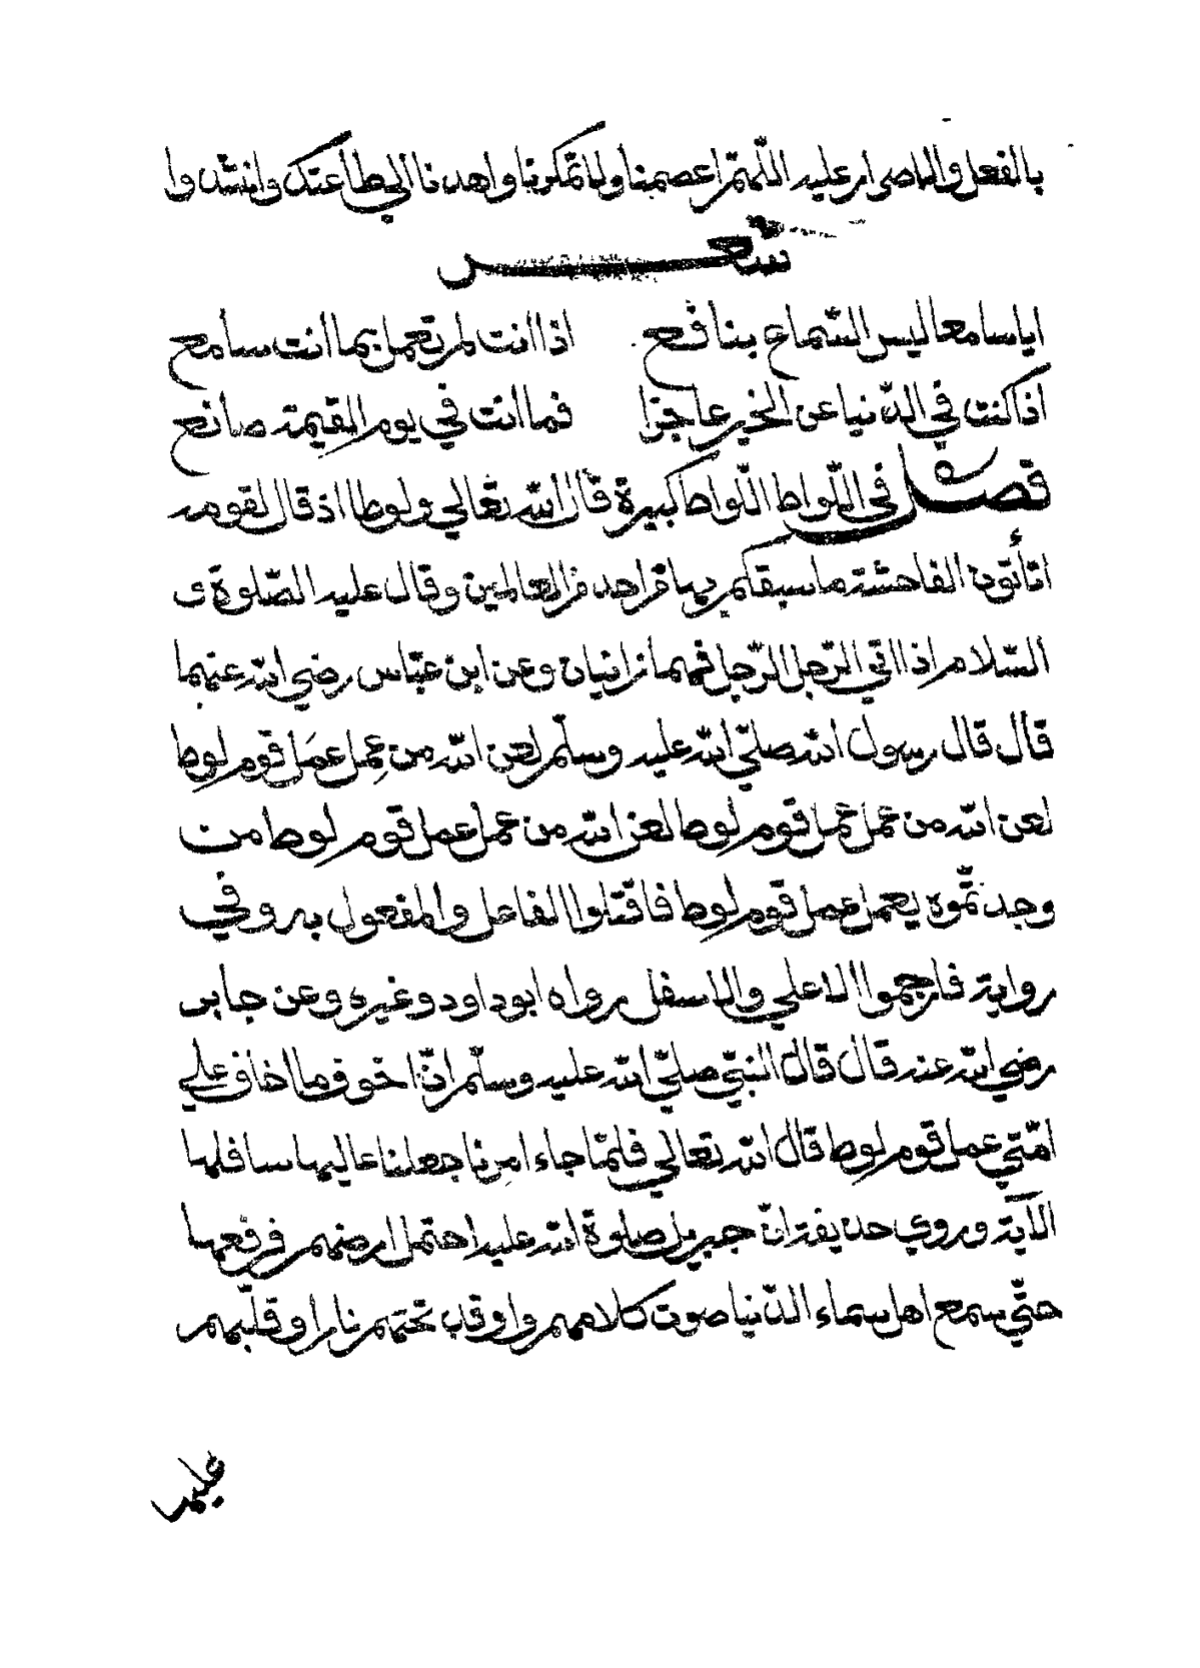 بالفعل والاصرار عليه اللهمّ اعصمنا ولا تمكر بنا واهدنا الي طاعتك وانشدوا
شعر
ايا سامعا ليس السّماع بنافع اذا انت لم تعمل بما انت سامع
اذا كنت في الدّنيا عن الخير عاجزا فما انت في يوم القيمة صانع
فصل في اللّواط اللّواط كبيرة قال الله تعالي ولوطا اذ قال لقومه
اتأتون الفاحشة ما سبقكم بها من احد من العالمين وقال عليه الصّلوة و
السّلام اذا اتي الرّجل الرّجل فهما زانيان وعن ابن عبّاس رضي الله عنهما
قال قال رسول الله صلّي الله عليه وسلّم لعن الله من عمل عمل قوم لوط
لعن الله من عمل عمل قوم لوط لعن الله من عمل عمل قوم لوط من
وجدتّموه يعمل عمل قوم لوط فاقتلوا الفاعل والمفعول به وفي
رواية فارجموا الاعلي والاسفل رواه ابو داود وغيره وعن جابر
رضي الله عنه قال قال النبيّ صلّي الله عليه وسلّم انّ اخوف ما اخاف علي
امّتي عمل قوم لوط قال الله تعالي فلمّا جاء امرنا جعلنا عاليها سافلها
الآية وروي حذيفة انّ جبريل صلوة الله عليه احتمل ارضهم فرفعها
حتّي سمع اهل سماء الدّنيا صوت كلامهم واوقد تحتهم نارا وقلّبهم
عليهم